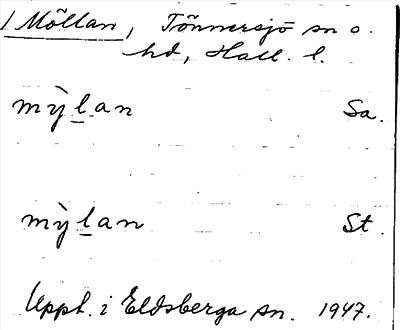 1 Möllan, Tönnersjö sn o.
hd, Hall. l.
mỳl̲an Sa.
mỳl̲an St.
Uppt. i Eldsberga sn. 1947.